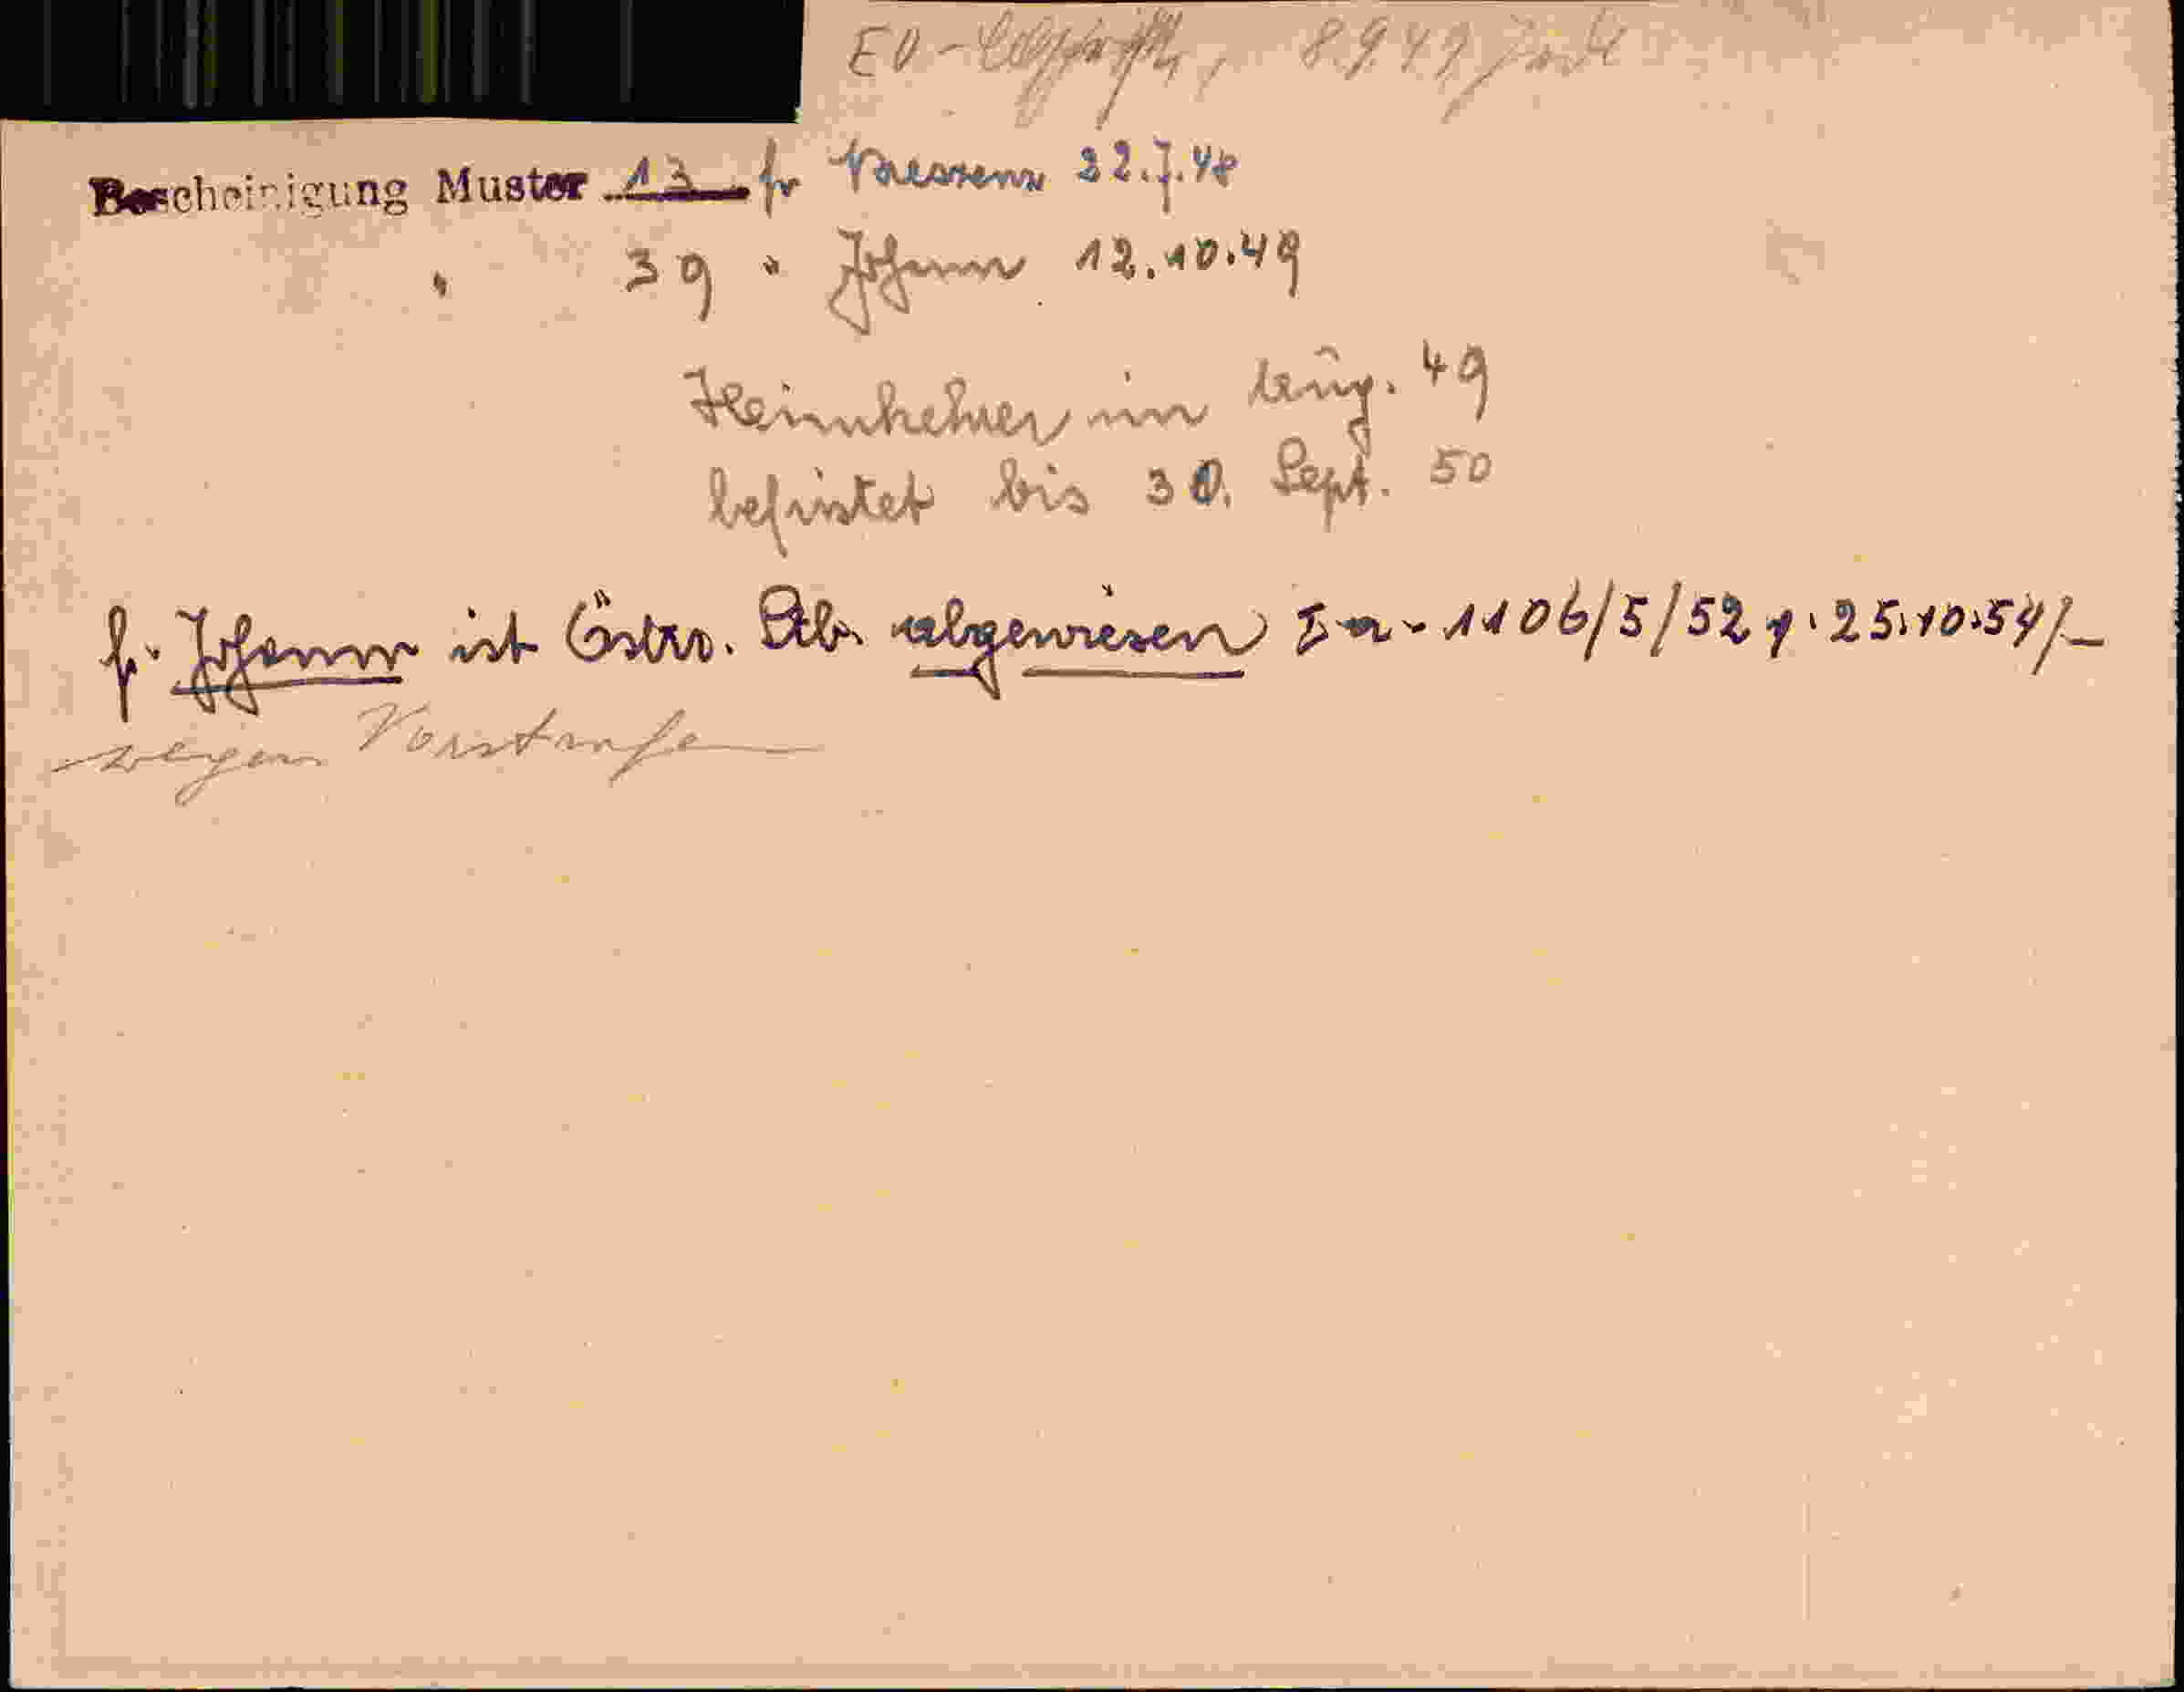 ED - Abschrift, 8.9.49
Bescheinigung Muster 13 fr 22.7.48
" 39 " Johann 12.10.49
Heimkehrer im Aug. 49
befristet bis 30. Sept. 50
f. Johann ist Östrr. Stb. abgewiesen I a - 1106/5/52 v. 25.10.54/-
wegen Vorstrafe